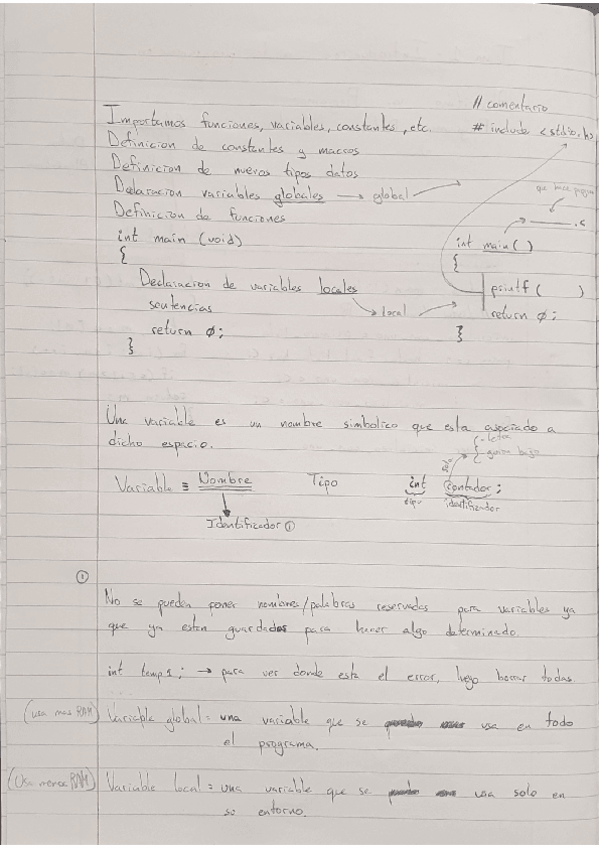 // comentario
Importamos funciones, variables, constantes, etc. # include <stdio.h>
Definicion de constantes y macros
Definicion de nuevos tipos datos
Declaracion variables globales → global
que hace
Definicion de funciones
.c
int main (void)
int main ( )
{
{
Declaracion de variables locales
printf ( )
sentencias → local
return 0;
return 0;
}
}
Una variable es un nombre simbolico que esta asociado a
dicho espacio.
- letra
- guion bajo
solo
Variable ≡ Nombre Tipo int contador;
tipo identificador
Identificador ①
①
No se pueden poner nombres/palabras reservadas para variables ya
que ya estan guardados para hacer algo determinado.
int temp1; → para ver donde esta el error, luego borrar todas.
(usa mas RAM) Variable global = una variable que se usa en todo
el programa.
(Usa menos RAM) Variable local = una variable que se usa solo en
su entorno.